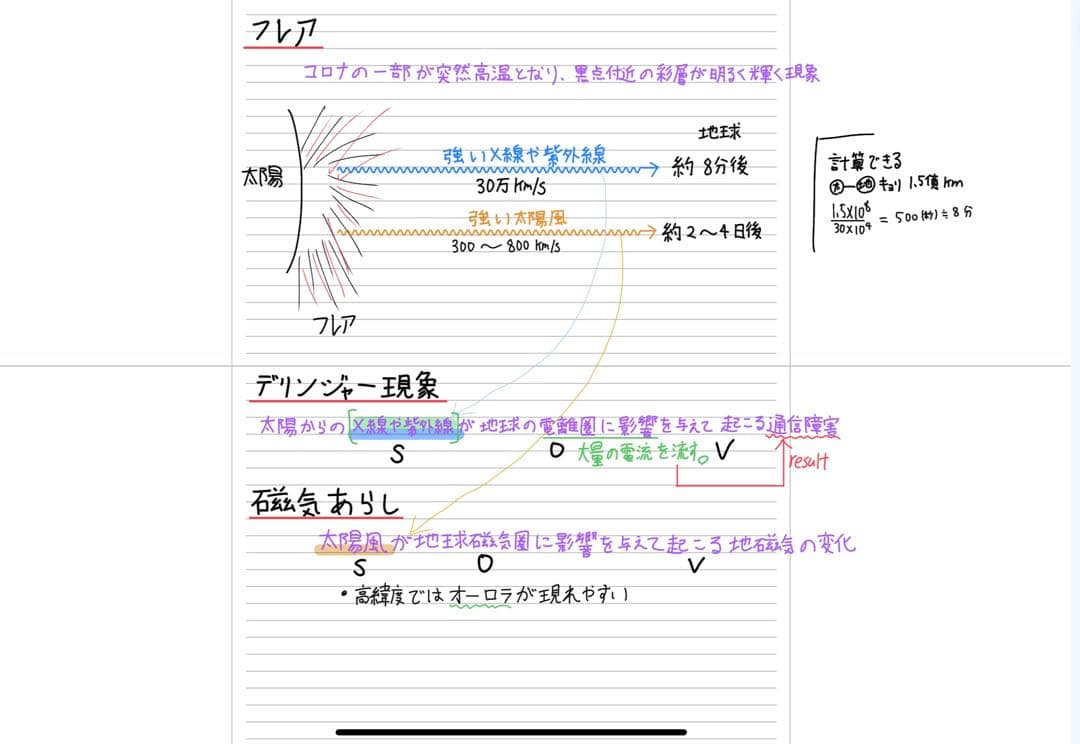 フレア
コロナの一部が突然高温となり、黒点付近の彩層が明るく輝く現象
地球
強いX線や紫外線
約8分後
太陽
30万km/s
強い太陽風
約2〜4日後
300〜800km/s
フレア
計算できる
太ー地キョリ 1.5億km
1.5×10⁸
30×10⁴
= 500(秒)≒8分
デリンジャー現象
太陽からの[X線や紫外線]が地球の電離圏に影響を与えて起こる通信障害
S O 大量の電流を流す。V
result
磁気あらし
太陽風が地球磁気圏に影響を与えて起こる地磁気の変化
S O V
・高緯度ではオーロラが現れやすい